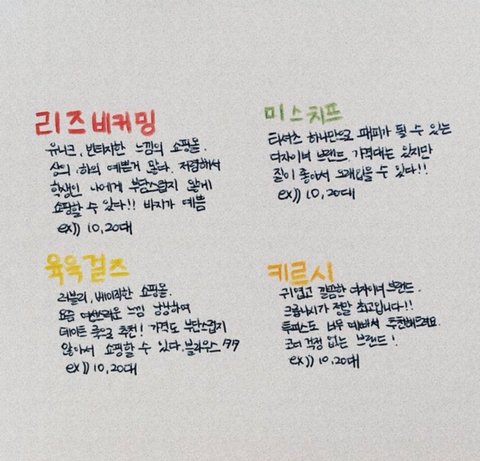 리즈비커밍
유니크, 빈티지한 느낌의 쇼핑몰.
상의·하의 예쁜게 많다. 저렴해서
학생인 나에게 부담스럽지 않게
쇼핑할 수 있다!! 바지가 예쁨
ex)) 10,20대
미스치프
티셔츠 하나만으로 패피가 될 수 있는
디자이너 브랜드. 가격대는 있지만
질이 좋아서 오래입을 수 있다!!
ex)) 10,20대
육육걸즈
러블리, 베이직한 쇼핑몰.
요즘 여성스러운 느낌 낭낭하여
데이트 룩으로 추천! 가격도 부담스럽지
않아서 쇼핑할 수 있다. 블라우스
ex)) 10,20대
키르시
귀엽고 깔끔한 디자이너 브랜드.
크롭나시가 정말 최고입니다!!
투피스도 너무 예뻐서 추천해드려요.
코디 걱정 없는 브랜드!
ex)) 10,20대